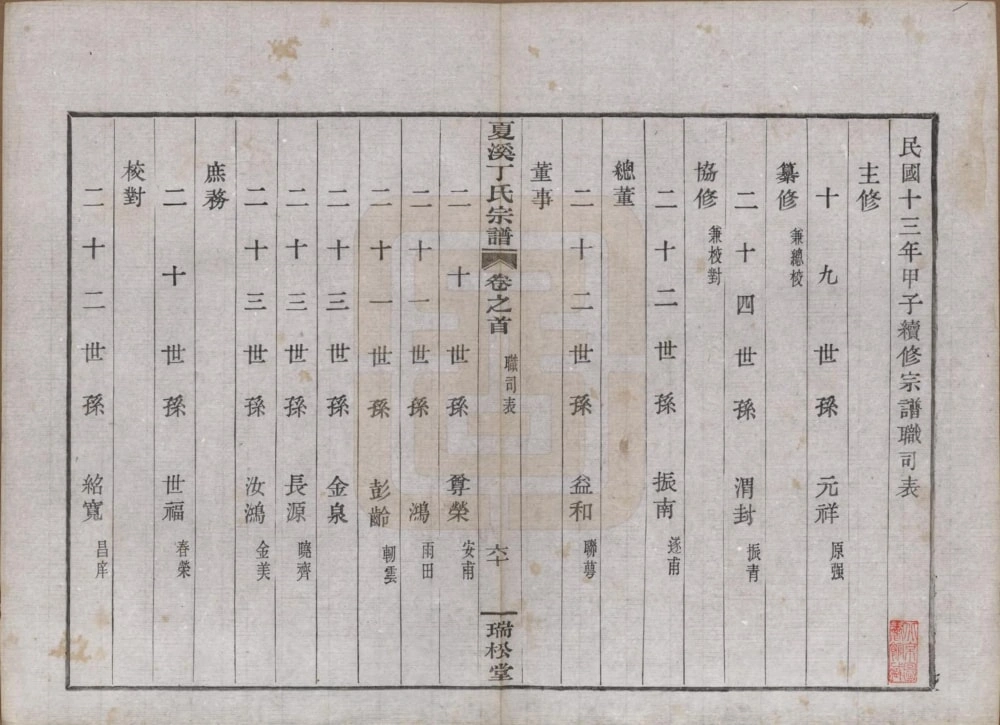 民國十三年甲子續修宗譜職司表
主修
十九世孫 元祥 原强
纂修 兼總校
二十四世孫 渭封 振青
協修 兼校對
二十二世孫 振南 逐甫
總董
二十二世孫 益和 聯萼
董事
夏溪丁氏宗譜 卷之首 職司表 六十 瑞松堂
二十世孫 尊榮 安甫
二十一世孫 鴻 雨田
二十一世孫 彭齡 韌雲
二十三世孫 金泉
二十三世孫 長源 曉齊
二十三世孫 汝鴻 金美
庶務
二十世孫 世福 春榮
校對
二十二世孫 紹寬 昌庠